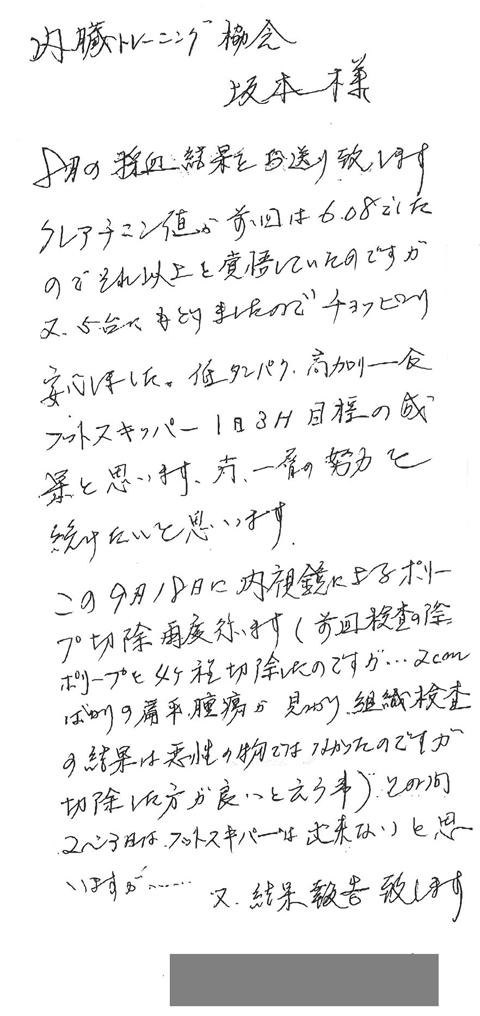 内臓トレーニング協会
坂本様
8月の採血結果をお送り致します
クレアチニン値が前回は6.08でした
のでそれ以上を覚悟していたのですが
又、5台にもどりましたのでチョッピリ
安心しました。低タンパク、高カロリー食
フットスキッパー1日3H目標の成
果と思います、尚、一層の努力を
続けたいと思います
この9月18日に内視鏡によるポリー
プ切除再度行います(前回検査の際
ポリープを4ケ程切除したのですが…2cm
ばかりの扁平腫瘍が見つかり組織検査
の結果は悪性の物ではなかったのですが
切除した方が良いと云う事)その間
2〜3日はフットスキパーは出来ないと思
いますが……
又、結果報告致します